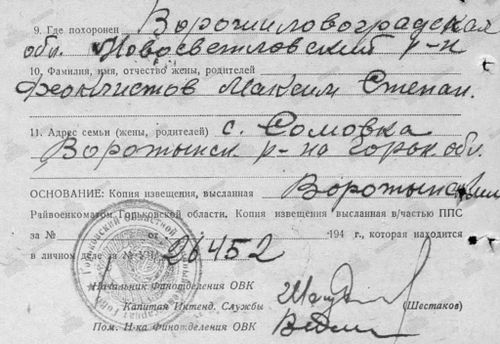 9. Где похоронен Ворошиловоградская
обл. Новосветловский р-н
10. Фамилия, имя, отчество жены, родителей
Феоктистов Максим Степан.
11. Адрес семьи (жены, родителей) с. Сомовка
Воротынск р-на Горьк обл.
ОСНОВАНИЕ: Копия извещения, высланная Воротынским
Райвоенкоматом Горьковской области. Копия извещения высланная в/частью ППС
за № от 194 г., которая находится
в личном деле за № 26452
Начальник Финотделения ОВК
Капитан Интенд. Службы (Шестаков)
Пом. Н-ка Финотделения ОВК